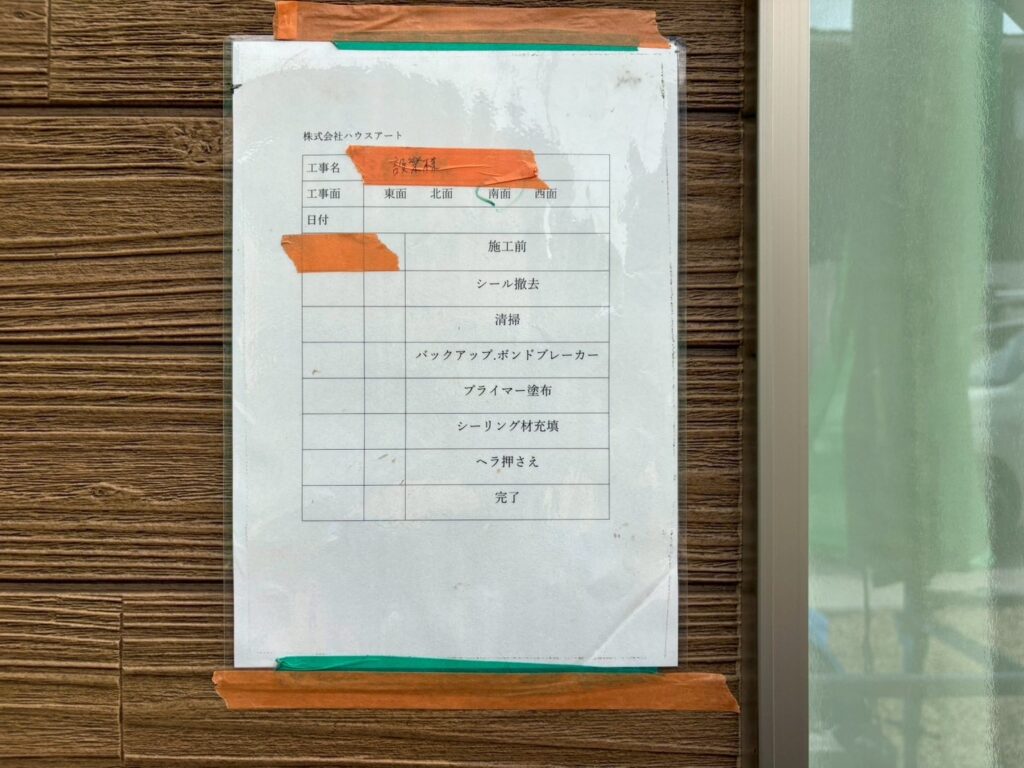 株式会社ハウスアート
工事名 設楽様
工事面 東面 北面 南面 西面
日付
施工前
シール撤去
清掃
バックアップ.ボンドブレーカー
プライマー塗布
シーリング材充填
ヘラ押さえ
完了